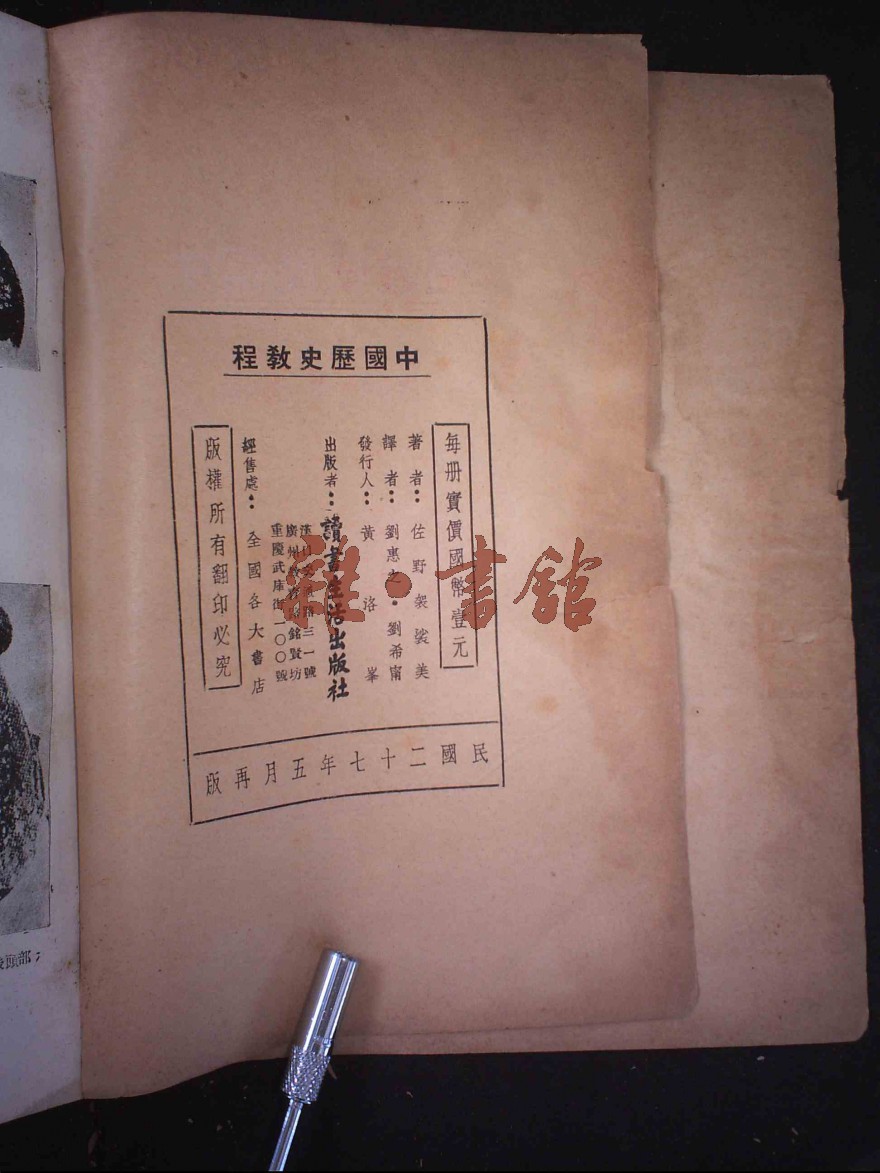 中國歷史教程
每册實價國幣壹元
著者：佐野袈裟美
譯者：劉惠之・劉希甯
發行人：黃洛峯
出版者：讀書生活出版社
漢口交通路三一號
廣州教育路銘賢坊
重慶武庫街一〇〇號
經售處：全國各大書店
版權所有翻印必究
民國二十七年五月再版
雜・書館
後頭部；